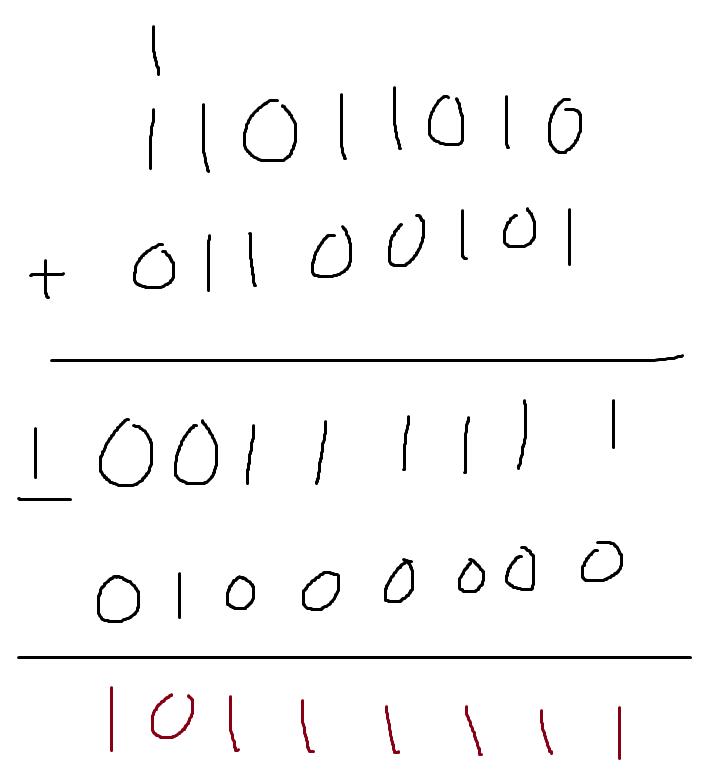 1
11011010
+ 01100101
1 00111111
01000000
10111111